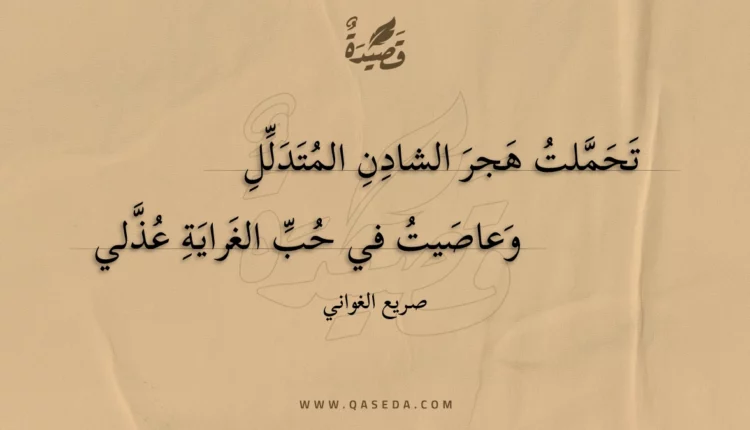 قَصِيْدَةٌ
تَحَمَّلتُ هَجرَ الشادِنِ المُتَدَلِّلِ
وَعاصَيتُ في حُبِّ الغَرايَةِ عُذَّلي
صريع الغواني
WWW.QASEDA.COM